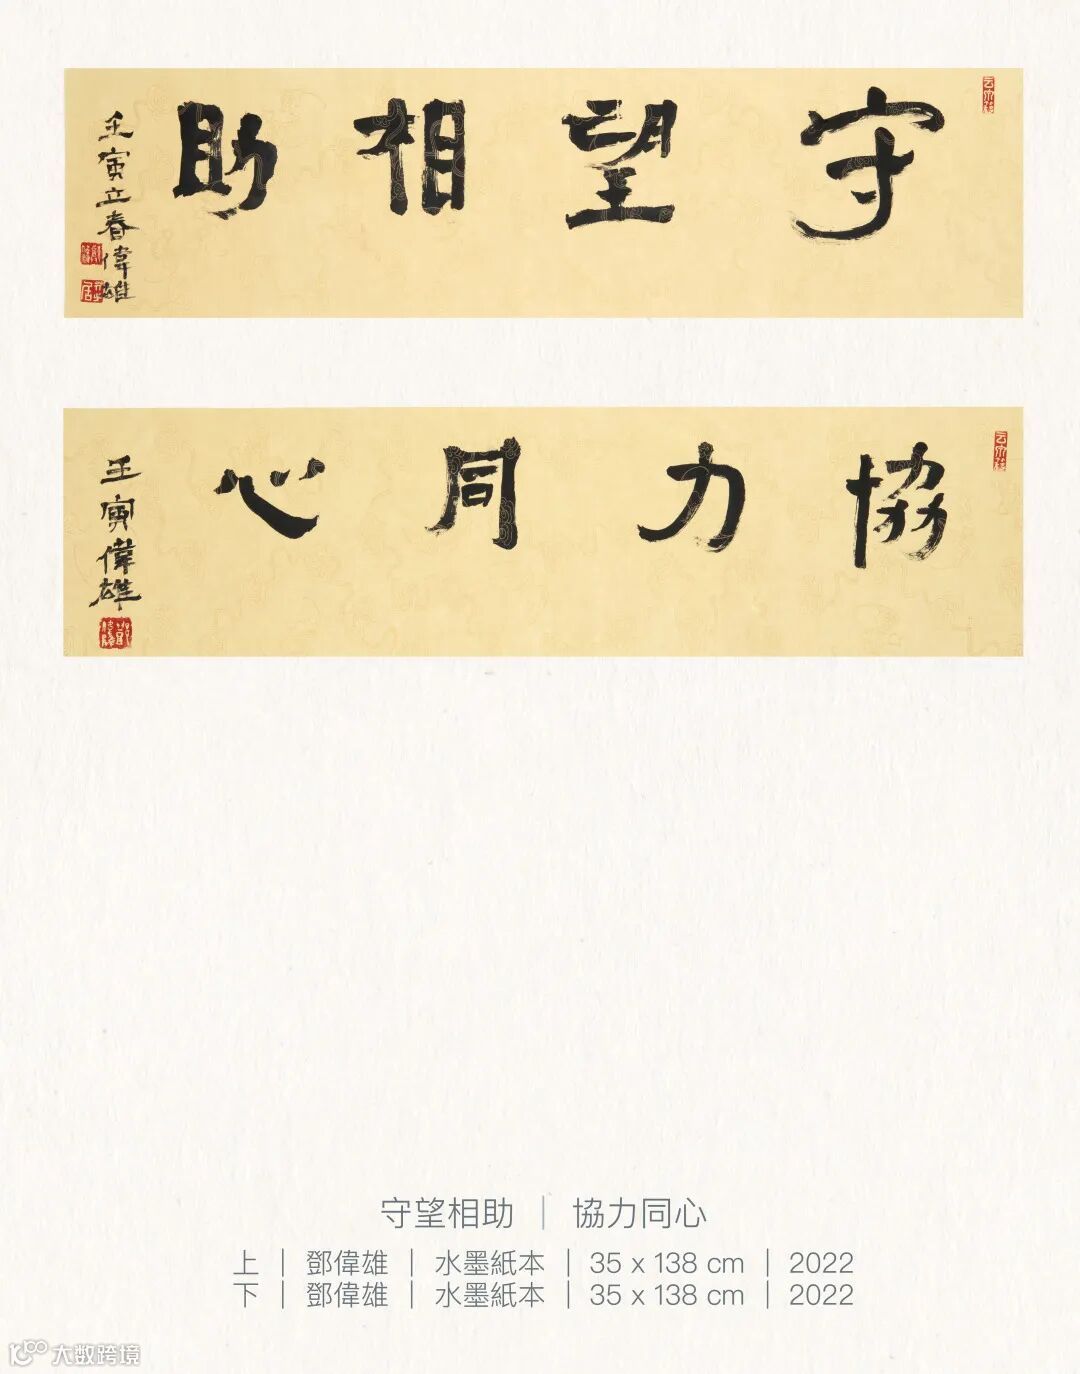 守望相助
壬寅立春偉雄
協力同心
壬寅偉雄
守望相助 | 協力同心
上 | 鄧偉雄 | 水墨紙本 | 35 x 138 cm | 2022
下 | 鄧偉雄 | 水墨紙本 | 35 x 138 cm | 2022
大数跨境